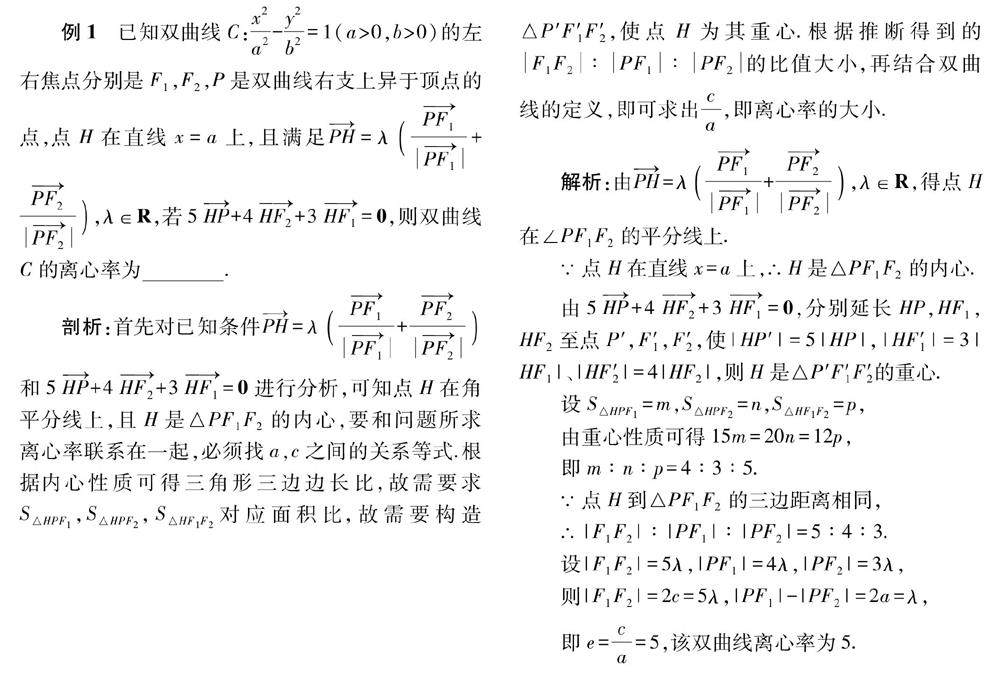 例1 已知双曲线 C:x²/a²-y²/b²=1(a>0,b>0)的左
右焦点分别是 F₁,F₂,P 是双曲线右支上异于顶点的
点,点 H 在直线 x=a 上,且满足\overrightarrow{PH}=λ(\overrightarrow{PF₁}/|\overrightarrow{PF₁}|+
\overrightarrow{PF₂}/|\overrightarrow{PF₂}|),λ∈R,若 5\overrightarrow{HP}+4\overrightarrow{HF₂}+3\overrightarrow{HF₁}=0,则双曲线
C 的离心率为________.
剖析:首先对已知条件\overrightarrow{PH}=λ(\overrightarrow{PF₁}/|\overrightarrow{PF₁}|+\overrightarrow{PF₂}/|\overrightarrow{PF₂}|)
和 5\overrightarrow{HP}+4\overrightarrow{HF₂}+3\overrightarrow{HF₁}=0 进行分析,可知点 H 在角
平分线上,且 H 是△PF₁F₂ 的内心,要和问题所求
离心率联系在一起,必须找 a,c 之间的关系等式.根
据内心性质可得三角形三边边长比,故需要求
S△HPF₁,S△HPF₂,S△HF₁F₂ 对应面积比,故需要构造
△P′F′₁F′₂,使点 H 为其重心.根据推断得到的
|F₁F₂|∶|PF₁|∶|PF₂|的比值大小,再结合双曲
线的定义,即可求出c/a,即离心率的大小.
解析:由\overrightarrow{PH}=λ(\overrightarrow{PF₁}/|\overrightarrow{PF₁}|+\overrightarrow{PF₂}/|\overrightarrow{PF₂}|),λ∈R,得点 H
在∠PF₁F₂ 的平分线上.
∵点 H 在直线 x=a 上,∴H 是△PF₁F₂ 的内心.
由 5\overrightarrow{HP}+4\overrightarrow{HF₂}+3\overrightarrow{HF₁}=0,分别延长 HP,HF₁,
HF₂ 至点 P′,F′₁,F′₂,使|HP′|=5|HP|,|HF′₁|=3|
HF₁|、|HF′₂|=4|HF₂|,则 H 是△P′F′₁F′₂的重心.
设 S△HPF₁=m,S△HPF₂=n,S△HF₁F₂=p,
由重心性质可得 15m=20n=12p,
即 m∶n∶p=4∶3∶5.
∵点 H 到△PF₁F₂ 的三边距离相同,
∴|F₁F₂|∶|PF₁|∶|PF₂|=5∶4∶3.
设|F₁F₂|=5λ,|PF₁|=4λ,|PF₂|=3λ,
则|F₁F₂|=2c=5λ,|PF₁|-|PF₂|=2a=λ,
即 e=c/a=5,该双曲线离心率为 5.